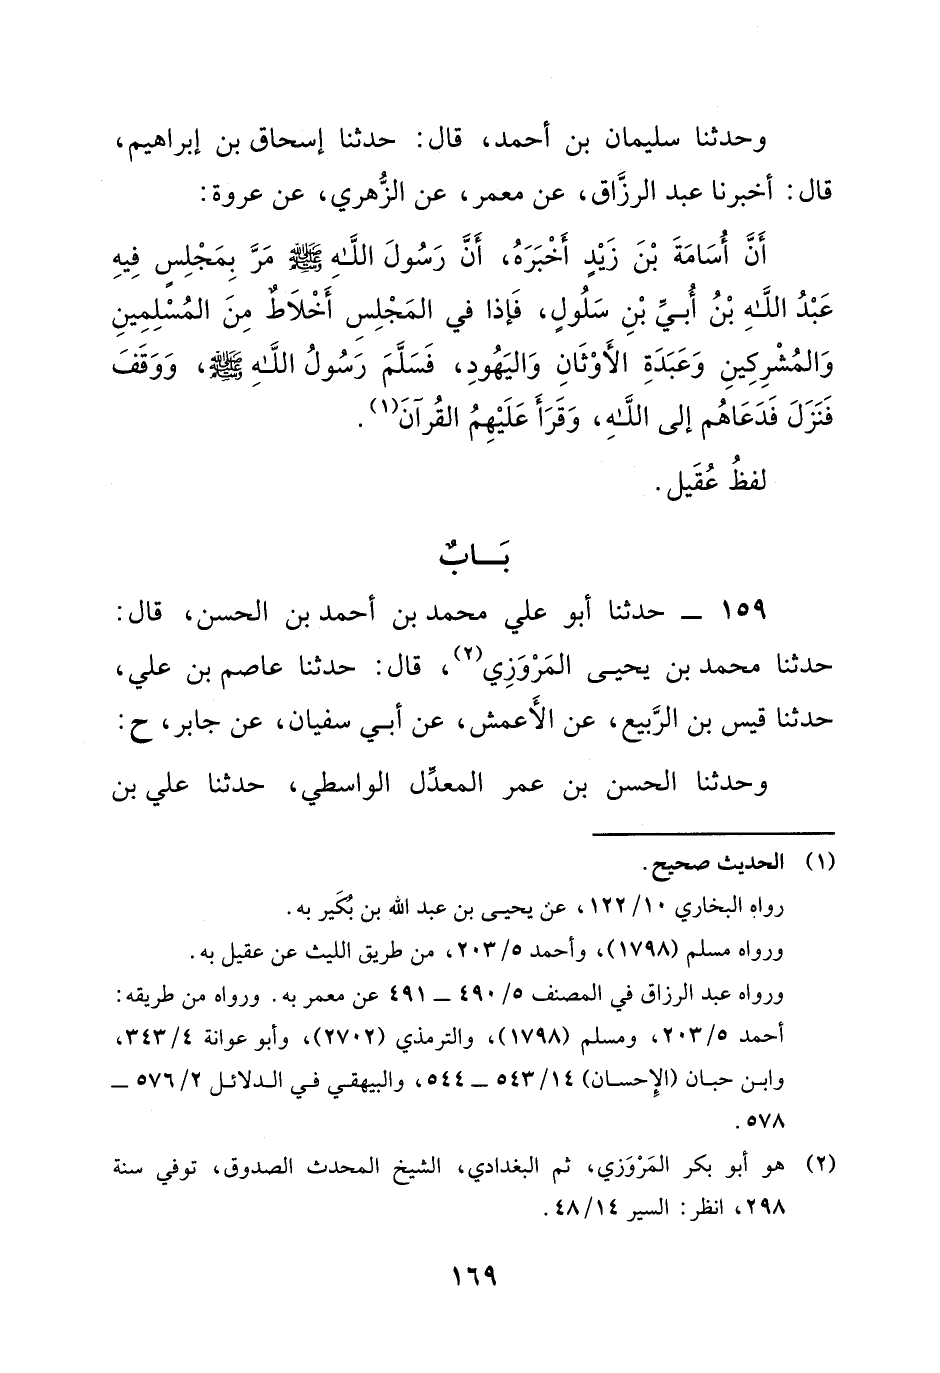 وحدثنا سليمان بن أحمد، قال: حدثنا إسحاق بن إبراهيم،
قال: أخبرنا عبد الرزَّاق، عن معمر، عن الزُّهري، عن عروة:
أَنَّ أُسَامَةَ بْنَ زَيْدٍ أَخْبَرَهُ، أَنَّ رَسُولَ اللَّـهِ ﷺ مَرَّ بِمَجْلِسٍ فِيهِ
عَبْدُ اللَّـهِ بْنُ أُبـيِّ بْنِ سَلُولٍ، فَإذا في المَجْلِسِ أَخْلَاطٌ مِنَ المُسْلِمِينِ
وَالمُشْرِكِينِ وَعَبَدَةِ الأَوْثَانِ وَاليَهُودِ، فَسَلَّمَ رَسُولُ اللَّـهِ ﷺ، وَوَقَفَ
فَنَزَلَ فَدَعَاهُم إلى اللَّـهِ، وَقَرَأَ عَلَيْهِمُ القُرآنَ(١).
لفظُ عُقَيل.
بَـــابٌ
١٥٩ ـ حدثنا أبو علي محمد بن أحمد بن الحسن، قال:
حدثنا محمد بن يحيـى المَرْوَزِي(٢)، قال: حدثنا عاصم بن علي،
حدثنا قيس بن الرَّبيع، عن الأَعمش، عن أبـي سفيان، عن جابر، ح:
وحدثنا الحسن بن عمر المعدِّل الواسطي، حدثنا علي بن
(١) الحديث صحيح.
رواه البخاري ١٠/ ١٢٢، عن يحيـى بن عبد الله بن بُكَير به.
ورواه مسلم (١٧٩٨)، وأحمد ٥/ ٢٠٣، من طريق الليث عن عقيل به.
ورواه عبد الرزاق في المصنف ٥/ ٤٩٠ ـ ٤٩١ عن معمر به. ورواه من طريقه:
أحمد ٥/ ٢٠٣، ومسلم (١٧٩٨)، والترمذي (٢٧٠٢)، وأبو عوانة ٤/ ٣٤٣،
وابن حبان (الإحسان) ١٤/ ٥٤٣ ـ ٥٤٤، والبيهقي في الدلائل ٢/ ٥٧٦ ـ
٥٧٨.
(٢) هو أبو بكر المَرْوَزي، ثم البغدادي، الشيخ المحدث الصدوق، توفي سنة
٢٩٨، انظر: السير ١٤/ ٤٨.
١٦٩